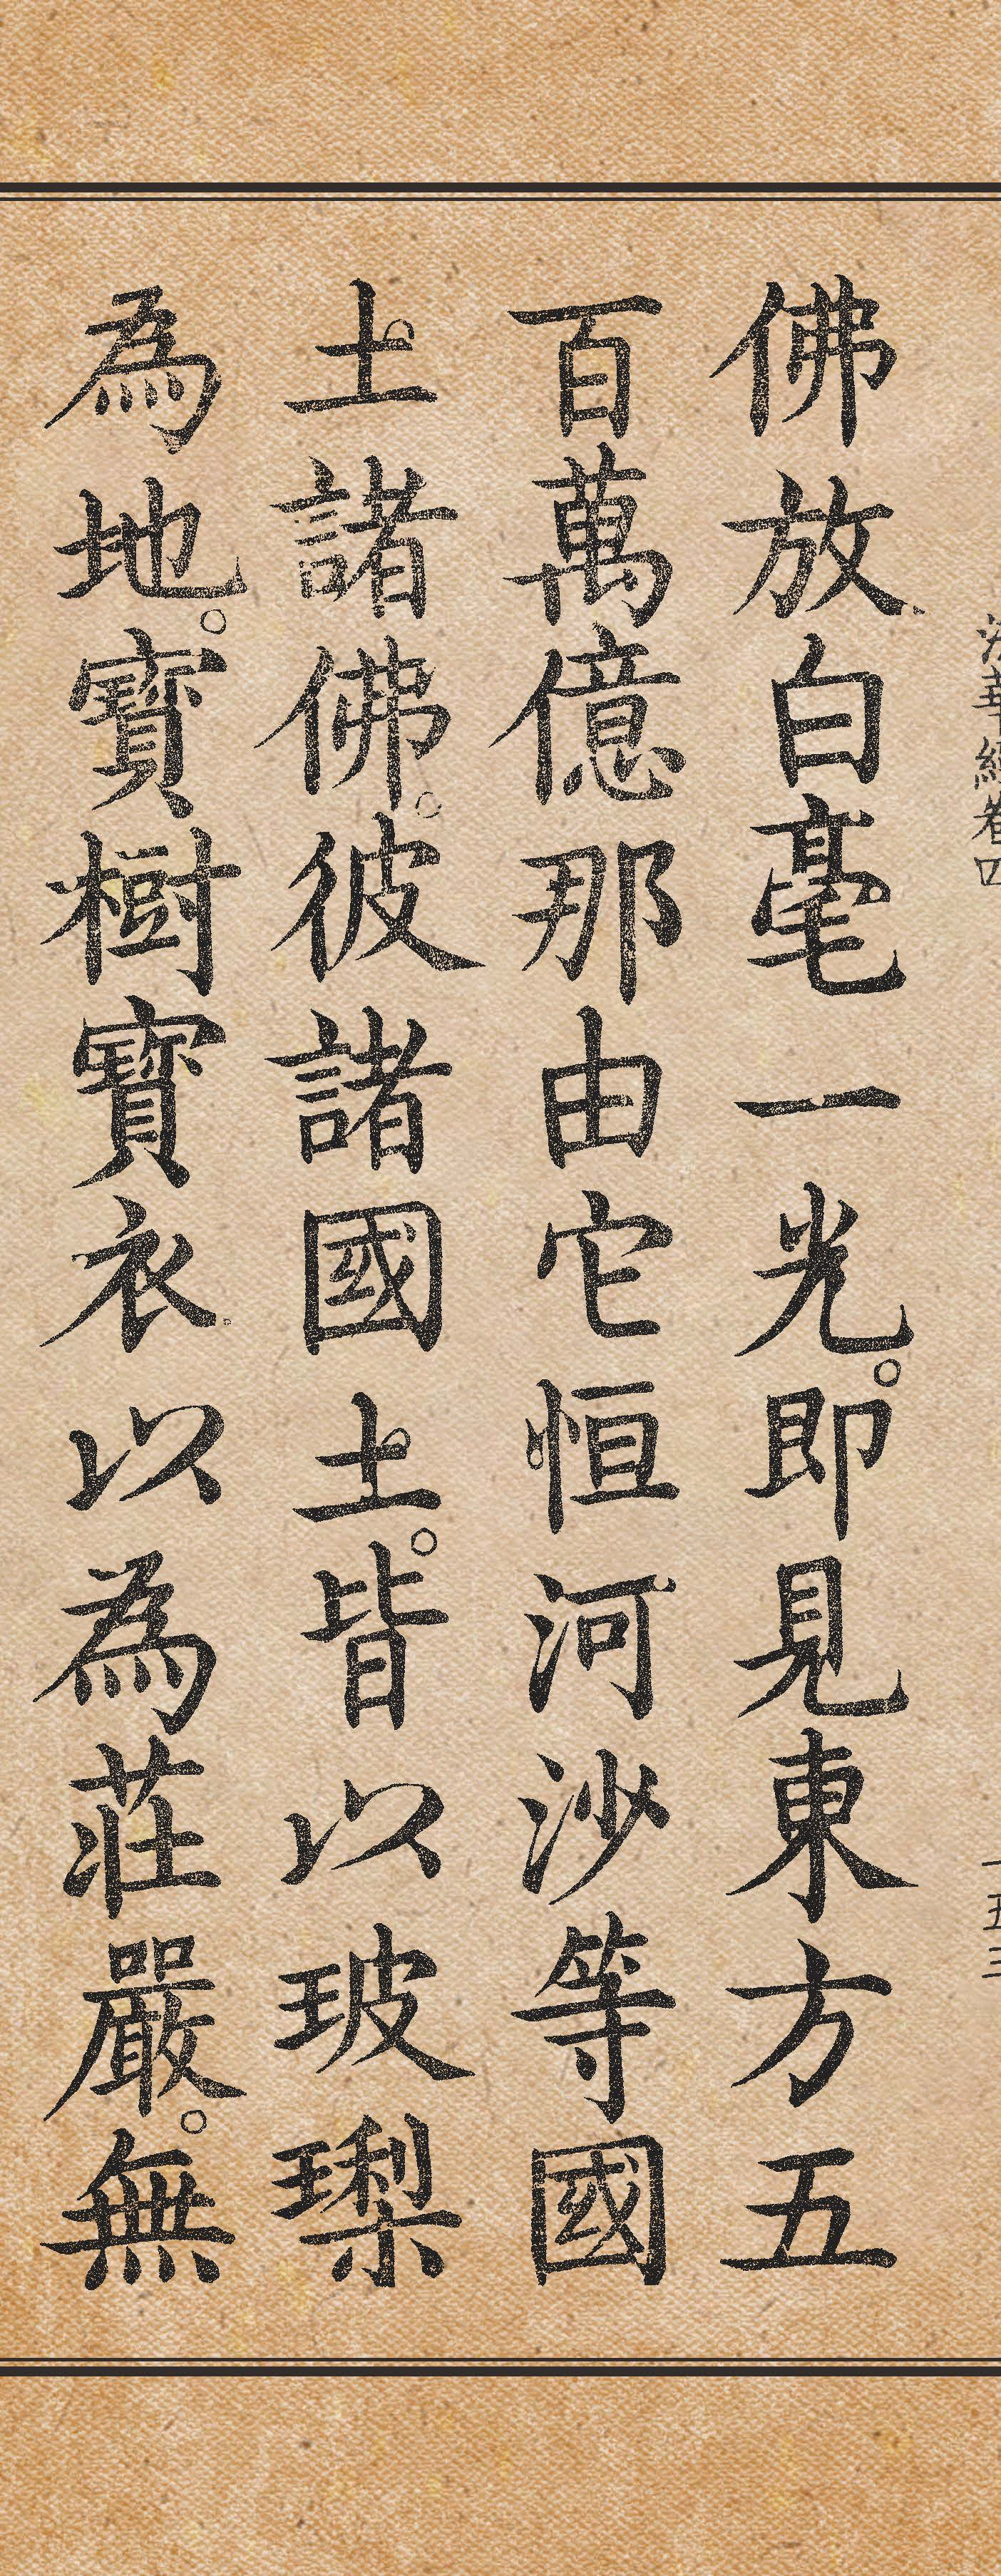 法華經卷四
佛放白毫一光。即見東方五
百萬億那由它恒河沙等國
土諸佛。彼諸國土。皆以玻瓈
為地。寶樹寶衣以為莊嚴。無